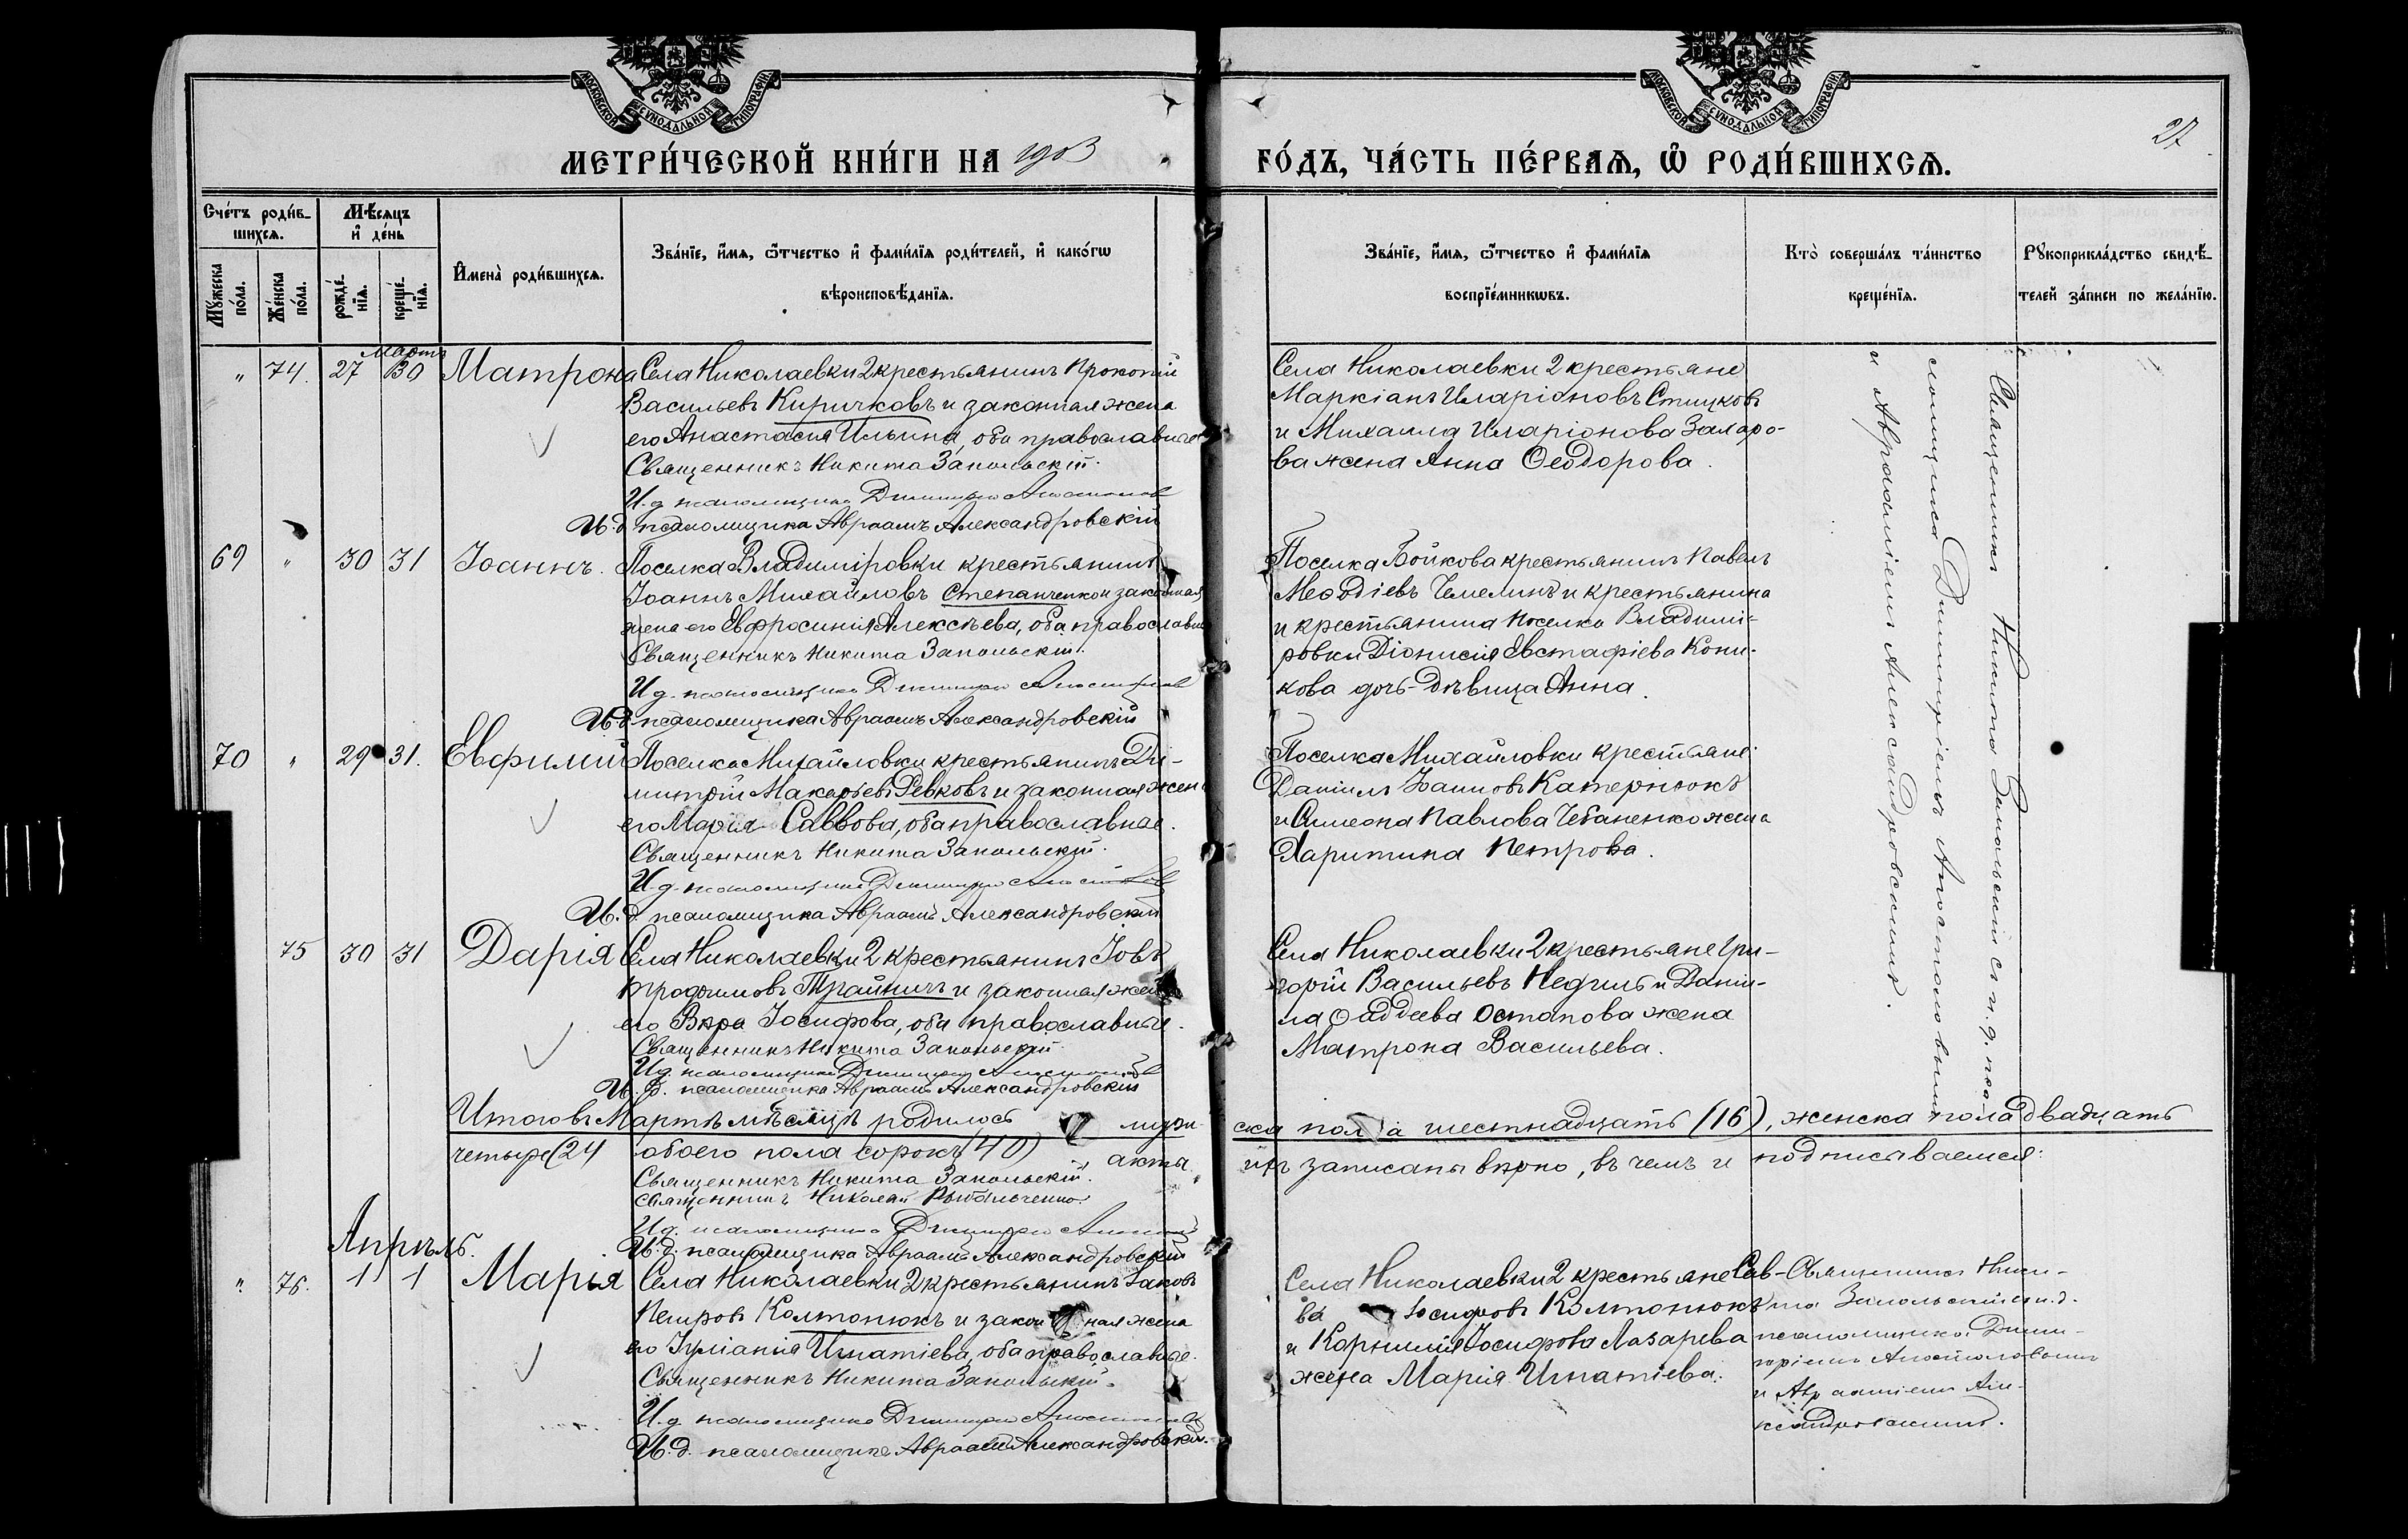 МОСКОВСКОЙ СѴНОДАЛЬНОЙ ТИПОГРАФІИ
МОСКОВСКОЙ СѴНОДАЛЬНОЙ ТИПОГРАФІИ
27
МЕТРИ́ЧЕСКОЙ КНИ́ГИ НА 1903
ГО́ДЪ, ЧА́СТЬ ПЕ́РВАѦ, Ѽ РОДИ́ВШИХСѦ.
Сче́тъ роди́в-
шихсѧ.
Мꙋ́жеска по́ла.
Же́нска по́ла.
Мѣ́сяцъ
и҆ де́нь
рожде́-
нїѧ.
креще́-
нїѧ.
И҆мена̀ роди́вшихсѧ.
Зва́нїе, и҆́мѧ, ѻ҆́тчество и҆ фами́лїѧ роди́телей, и҆ како́гѡ
вѣроисповѣ́данїѧ.
Зва́нїе, и҆́мѧ, ѻ҆́тчество и҆ фами́лїѧ
воспрїе́мникѡвъ.
Кто̀ соверша́лъ та́инство
креще́нїѧ.
Рꙋкоприкла́дство свидѣ́-
телей за́писи по жела́нїю.
Мартъ
" 74. 27 30 Матрона
Села Николаевки 2 крестьянинъ Прокопій
Васильевъ Киричковъ и законная жена
его Анастасія Ильина, оба православные
Священникъ Никита Запольскій.
И.д. псаломщика Димитрій Апостолов
И.д. псаломщика Авраамъ Александровскій
Села Николаевки 2 крестьяне
Маркіанъ Иларіоновъ Стицковъ
и Михаила Иларіонова Захаро-
ва жена Анна Ѳеодорова.
Священникъ Никита Запольскій съ и. д. пса-
ломщика Димитріемъ Апостоловымъ
и Авраміемъ Александровскимъ.
69 " 30 31 Іоаннъ.
Поселка Владиміровки крестьянинъ
Іоаннъ Михайловъ Степанченко и законная
жена его Евфросинія Алексѣева, оба православн
Священникъ Никита Запольскій.
И.д. псаломщика Димитрій Апостолов
И.д. псаломщика Авраамъ Александровскій
Поселка Бойкова крестьянинъ Павелъ
Меѳодіевъ Чемелинъ и крестьянина
и крестьянина поселка Владими-
ровки Діонисія Евстафіева Кони-
кова дочь-дѣвица Анна.
70 " 29 31. Евфимій
Поселка Михайловки крестьянинъ Ди-
митрій Макаріевъ Ревковъ и законная жена
его Марія Саввова, оба православные.
Священникъ Никита Запольскій.
И.д. псаломщика Димитрій Апостолов
И.д. псаломщика Авраамъ Александровскій
Поселка Михайловки крестьяне:
Даніилъ Іоанновъ Катернюкъ
и Симеона Павлова Чебаненко жена
Харитина Петрова.
75 30 31 Дарія
Села Николаевки 2 крестьянинъ Іовъ
Трофимовъ Трайничъ и законная жена
его Вѣра Іосифова, оба православные.
Священникъ Никита Запольскій
И.д. псаломщика Димитрій Апостолов
И.д. псаломщика Авраамъ Александровскій
Села Николаевки 2 крестьяне Гри-
горій Васильевъ Недуль и Даніи-
ла Ѳаддеева Остапова жена
Матрона Васильева.
Итого въ Мартѣ мѣсяцѣ родилось муже-
ска пола шестнадцать (16), женска пола двадцать
четыре (24 обоего пола сорокъ (40) акты
ихъ записаны вѣрно, въ чемъ и подписываемся:
Священникъ Никита Запольскій.
Священникъ Николай
И.д. псаломщика Димитрій Апостолов
И.д. псаломщика Авраамъ Александровскій
Апрѣль.
" 76. 1 1 Марія
Села Николаевки 2 крестьянинъ Іаковъ
Петровъ Колтонюкъ и законная жена
его Іуліанія Игнатіева, оба православные.
Священникъ Никита Запольскій.
И.д. псаломщика Димитрій Апостолов
И.д. псаломщика Авраамъ Александровскій.
Села Николаевки 2 крестьяне Сав-
ва Іосифовъ Колтонюкъ
и Корнилія Іосифова Лазарева
жена Марія Игнатіева.
Священникъ Ники-
та Запольскій съ и.д.
псаломщика Дими-
тріемъ Апостоловымъ
и Авраміемъ Але-
ксандровскимъ.